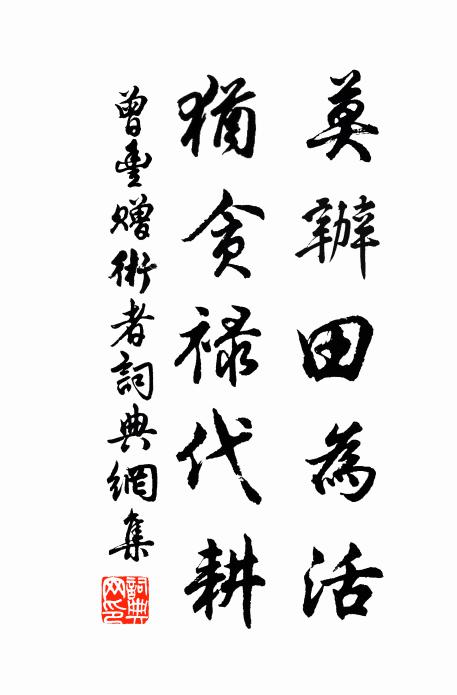 莫辦田為活
猶貪祿代耕
曾豐贈術者詞典網集
詞典網印